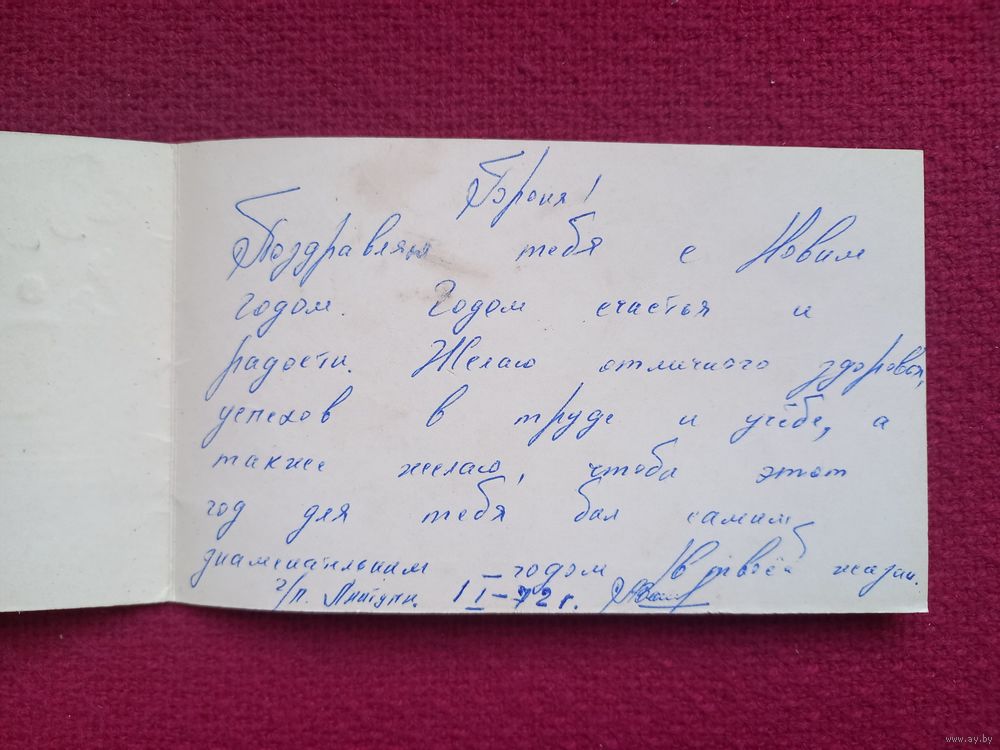 Броня!
Поздравляя тебя с Новым
годом. Годом счастья и
радости. Желаю отличного здоровья,
успехов в труде и учёбе, а
также желаю, чтобы этот
год для тебя был самым
знаменательным годом в твоей жизни.
г/п. 1 I-72 г.
www.ay.by